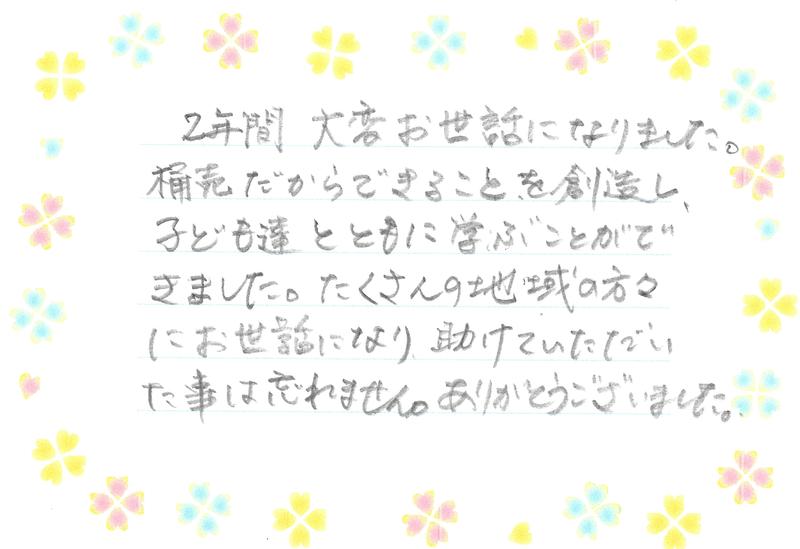 2年間 大変お世話になりました。
桶売だからできることを創造し、
子ども達とともに学ぶことがで
きました。たくさんの地域の方々
にお世話になり、助けていただい
た事は忘れません。ありがとうございました。